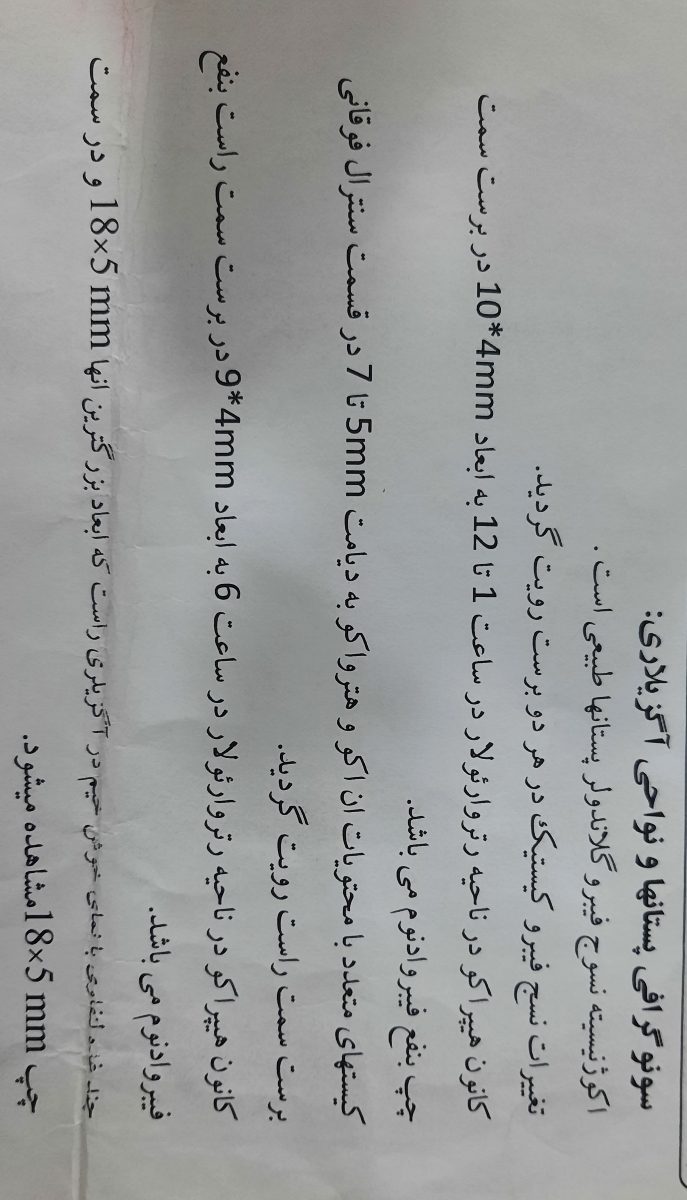 سونوگرافی پستانها و نواحی آگزیلاری:
اکوژنیسیته نسوج فیبروگلاندولر پستانها طبیعی است .
تغییرات نسج فیبروکیستیک در هر دو برست رویت گردید.
کانون هیپراکو در ناحیه رتروارئولار در ساعت 1 تا 12 به ابعاد 10*4mm در برست سمت
چپ بنفع فیبروادنوم می باشد.
کیستهای متعدد با محتویات ان اکو و هترواکو به دیامت 5mm تا 7 در قسمت سنترال فوقانی
برست سمت راست رویت گردید.
کانون هیپراکو در ناحیه رتروارئولار در ساعت 6 به ابعاد 9*4mm در برست سمت راست بنفع
فیبروادنوم می باشد.
چند غده لنفاوی با نمای خوش خیم در آگزیلری راست که ابعاد بزرگترین انها 18×5 mm و در سمت
چپ 18×5 mm مشاهده میشود.